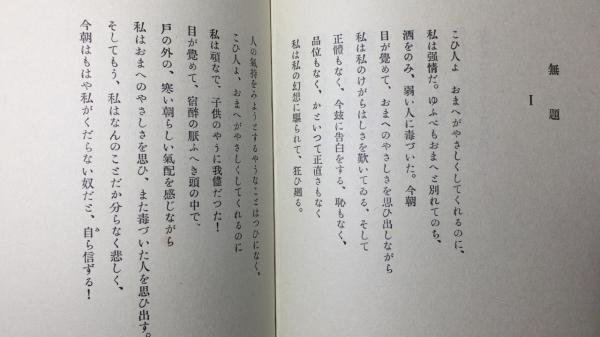 無題
I
こひ人よ おまへがやさしくしてくれるのに、
私は強情だ。ゆふべもおまへと別れてのち、
酒をのみ、弱い人に毒づいた。今朝
目が覺めて、おまへのやさしさを思ひ出しながら
私は私のけがらはしさを歎いてゐる。そして
正體もなく、今茲に告白をする、恥もなく、
品位もなく、かといつて正直さもなく
私は私の幻想に驅られて、狂ひ廻る。
人の氣持をみようとするやうなことはつひになく、
こひ人よ、おまへがやさしくしてくれるのに
私は頑なで、子供のやうに我儘だつた!
目が覺めて、宿醉の厭ふべき頭の中で、
戸の外の、寒い朝らしい氣配を感じながら
私はおまへのやさしさを思ひ、また毒づいた人を思ひ出す。
そしてもう、私はなんのことだか分らなく悲しく、
今朝はもはや私がくだらない奴だと、自ら信ずる!